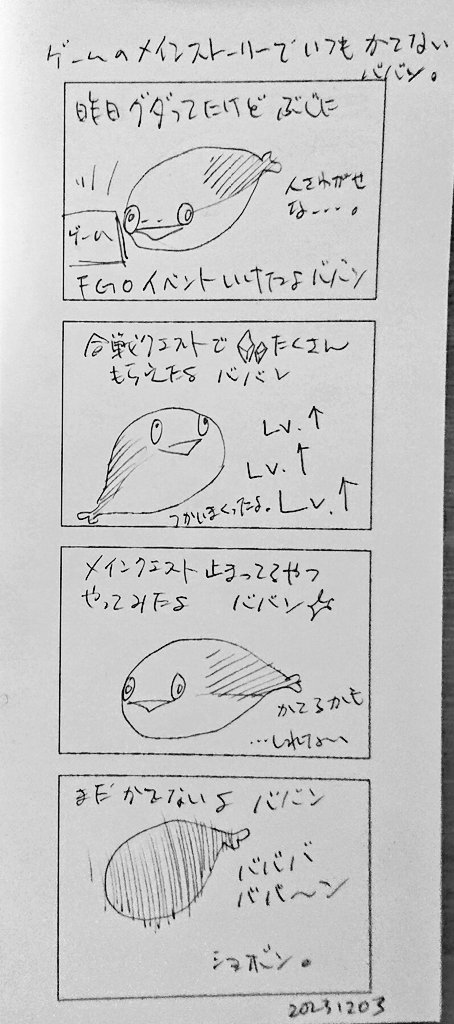 ゲームのメインストーリーでいつもかてない
ババン。
昨日グダってたけど ぶじに
人さわがせ
な…。
ゲーム
FGOイベントいけたよババン
合戦クエストで たくさん
もらえたよ ババン
Lv.↑
Lv.↑
つかいまくったよ。Lv.↑
メインクエスト止まってるやつ
やってみたよ ババン☆
かてるかも
…しれない
まだ かてないよ ババン
バババ
ババ〜ン
ショボン。
20231203